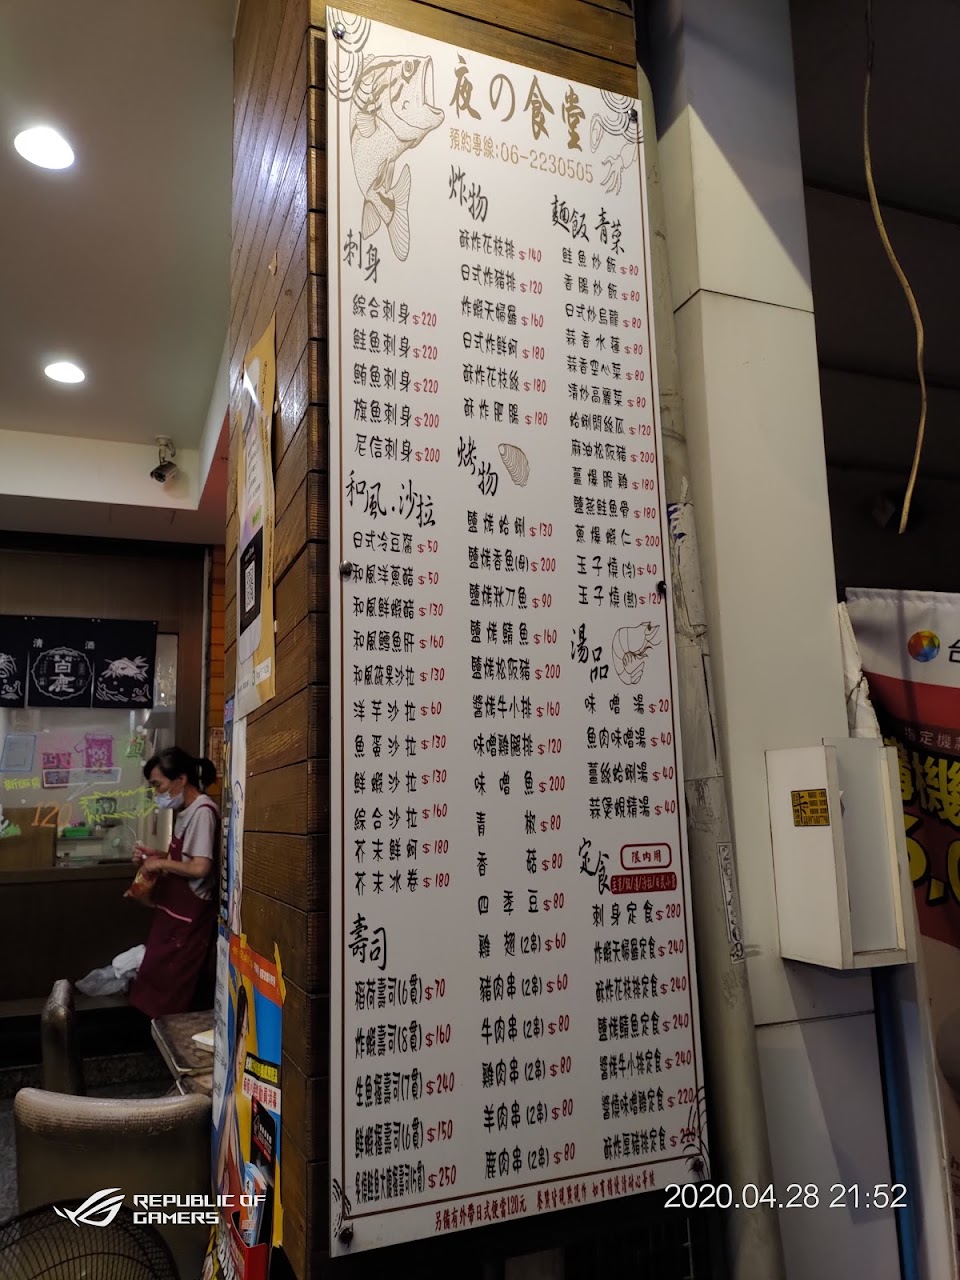 夜の食堂
預約專線:06-2230505
刺身
綜合刺身 $220
鮭魚刺身 $220
鮪魚刺身 $220
旗魚刺身 $200
尼信刺身 $200
和風.沙拉
日式冷豆腐 $50
和風洋蔥醋 $50
和風鮮蝦醋 $130
和風鱈魚肝 $160
和風蔬果沙拉 $130
洋芋沙拉 $60
魚蛋沙拉 $130
鮮蝦沙拉 $130
綜合沙拉 $160
芥末鮮蚵 $180
芥末冰卷 $180
壽司
稻荷壽司(6貫) $70
炸蝦壽司(8貫) $160
生魚握壽司(7貫) $240
鮮蝦握壽司(6貫) $150
炙燒鮭魚大腹握壽司(5貫) $250
炸物
酥炸花枝排 $140
日式炸豬排 $120
炸蝦天婦羅 $160
日式炸鮮蚵 $180
酥炸花枝絲 $180
酥炸肥腸 $180
烤物
鹽烤蛤蜊 $130
鹽烤香魚(母) $200
鹽烤秋刀魚 $90
鹽烤鯖魚 $160
鹽烤松阪豬 $200
醬烤牛小排 $160
味噌雞腿排 $120
味噌魚 $200
青椒 $80
香菇 $80
四季豆 $80
雞翅(2串) $60
豬肉串(2串) $60
牛肉串(2串) $80
雞肉串(2串) $80
羊肉串(2串) $80
鹿肉串(2串) $80
麵飯 青菜
鮭魚炒飯 $80
香腸炒飯 $80
日式炒烏龍 $80
蒜香水蓮 $80
蒜香空心菜 $80
清炒高麗菜 $80
蛤蜊悶絲瓜 $120
麻油松阪豬 $200
薑爆脆雞 $180
鹽蒸鮭魚骨 $180
蔥爆蝦仁 $200
玉子燒(冷) $40
玉子燒(熱) $120
湯品
味噌湯 $20
魚肉味噌湯 $40
薑絲蛤蜊湯 $40
蒜煲蜆精湯 $40
定食
限內用
刺身定食 $280
炸蝦天婦羅定食 $240
酥炸花枝排定食 $240
鹽烤鯖魚定食 $240
醬烤牛小排定食 $240
醬燒味噌雞定食 $220
酥炸厚豬排定食 $220
另備有外帶日式便當120元 餐點皆現點現作 如有稍後請耐心等候
清酒
白鹿
120
台
指定機
購機
REPUBLIC OF
GAMERS
2020.04.28 21:52